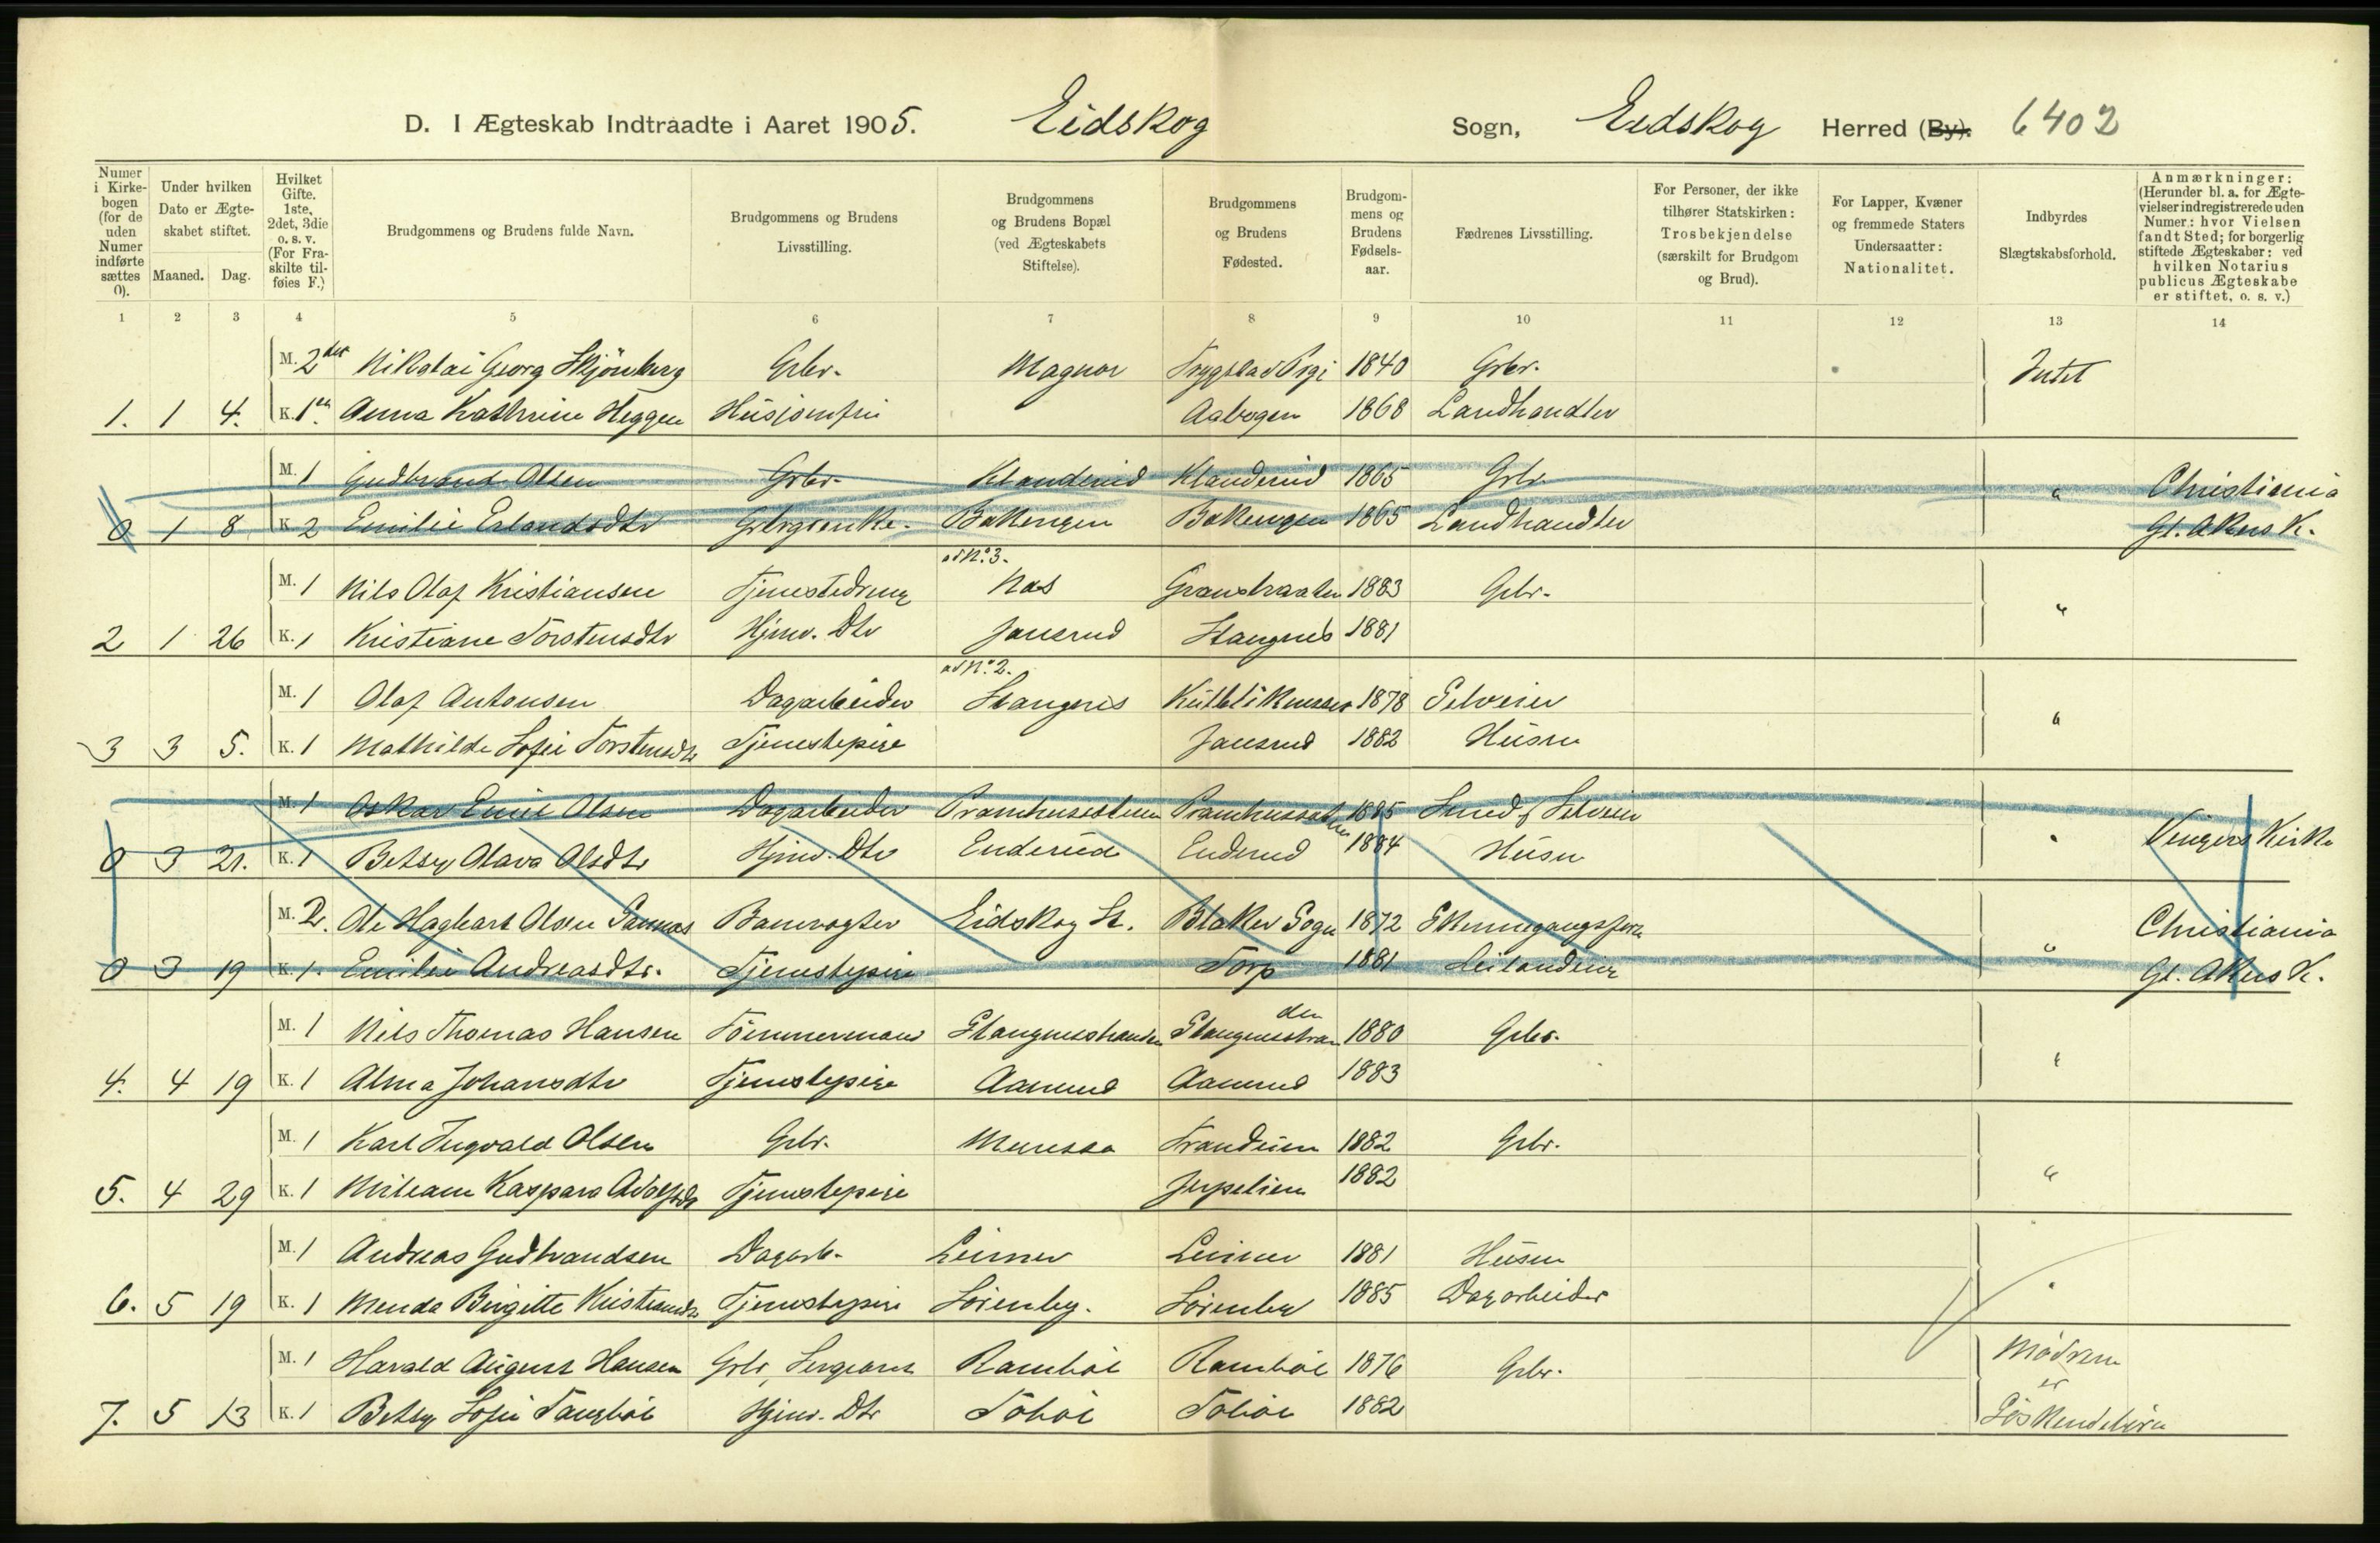 D. I Ægteskab Indtraadte i Aaret 1905. Eidskog Sogn, Eidskog Herred (By). 6402
Numer i Kirkebogen (for de uden Numer indførte sættes 0).
Under hvilken Dato er Ægteskabet stiftet.
Maaned. Dag.
Hvilket Gifte. 1ste, 2det, 3die o. s. v. (For Fraskilte tilføies F.)
Brudgommens og Brudens fulde Navn.
Brudgommens og Brudens Livsstilling.
Brudgommens og Brudens Bopæl (ved Ægteskabets Stiftelse).
Brudgommens og Brudens Fødested.
Brudgommens og Brudens Fødselsaar.
Fædrenes Livsstilling.
For Personer, der ikke tilhører Statskirken: Trosbekjendelse (særskilt for Brudgom og Brud).
For Lapper, Kvæner og fremmede Staters Undersaatter: Nationalitet.
Indbyrdes Slægtskabsforhold.
Anmærkninger: (Herunder bl. a. for Ægtevielser indregistrerede uden Numer: hvor Vielsen fandt Sted; for borgerlig stiftede Ægteskaber: ved hvilken Notarius publicus Ægteskabe er stiftet, o. s. v.)
1 2 3 4 5 6 7 8 9 10 11 12 13 14
M. 2det Nikolai Georg Skjönberg Gbr. Magnor 1840 Gbr. Intet
1. 1 4. K. 1ste Anna Kathrine Heggen Husjomfru Aabogen 1868 Landhandler
M. 1 Gudbrand Olsen Gbr. Klanderud Klanderud 1865 Gbr. " Christiania
0 1 8 K. 2 Emilie Erlandsdtr Bakengen Bakengen 1865 Landhandler Gl. Akers K.
M. 1 Nils Olaf Kristiansen Tjenestedreng ad No. 3. Næs 1883 Gbr. "
2 1 26 K. 1 Kristiane Torstensdtr Hjmv. Dtr Jansrud Stangnes 1881
M. 1 Olaf Antonsen Dagarbeider ad No. 2. Stangnes 1878 Selveier "
3 3 5. K. 1 Mathilde Sofie Torstensdtr Tjenestepige Jansrud 1882 Husm
M. 1 Oskar Emil Olsen Dagarbeider 1885 Smed & Selveier " Vingers Kirke
0 3 21. K. 1 Betsy Olava Olsdtr Hjmv. Dtr Enderud Enderud 1884 Husm
M. 2. Ole Hagbart Olsen Banevogter Eidskog St. Blaker Sogn 1872 " Christiania
0 3 19 K. 1. Emilie Andreasdtr. Tjenestepige Torp 1881 Leilænding Gl. Akers K.
M. 1 Nils Thomas Hansen Tömmermand Stangnesstranden Stangnesstranden 1880 Gbr. "
4. 4 19 K. 1 Alma Johansdtr Tjenestepige Aamrud Aamrud 1883
M. 1 Karl Ingvald Olsen Gbr. 1882 Gbr. "
5. 4 29 K. 1 Kaspara Adolfsdtr Tjenestepige 1882
M. 1 Andreas Gudbrandsen Dagarb. Leirner Leirner 1881 Husm "
6. 5 19 K. 1 Menda Birgitte Kristiansdtr Tjenestepige 1885 Dagarbeider
M. 1 Harald August Hansen Gbr, Sergeant Ramböl Ramböl 1876 Gbr. Mödrene er
7. 5 13 K. 1 Betsy Sofie Hjmv. Dtr Toböl Toböl 1882 Söskendebörn